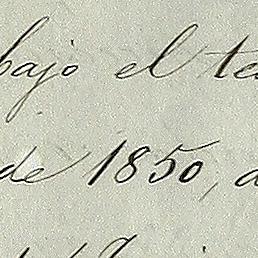 bajo el te
de 1850, a